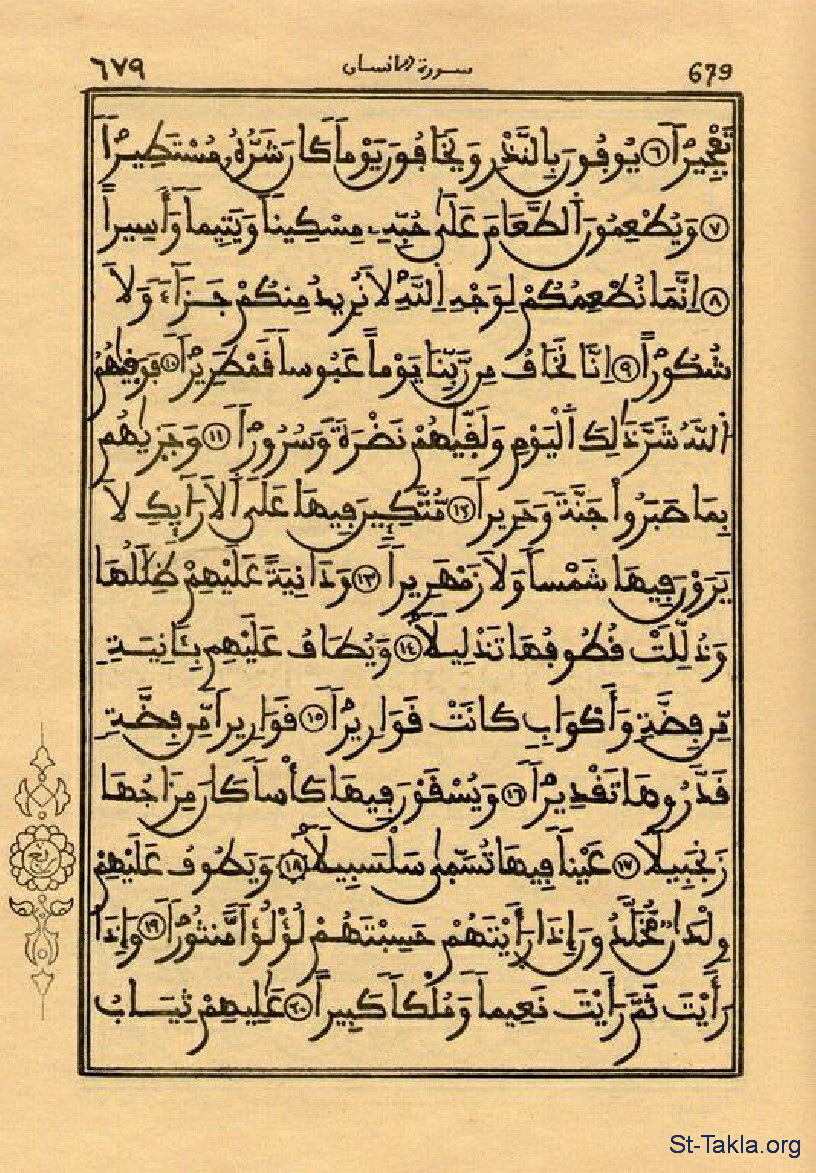 ٦٧٩ سورة الانسان 679
تَفْجِيراً ٦ يُوفُونَ بِالنَّذْرِ وَيَخَافُونَ يَوْماً كَانَ شَرُّهُۥ مُسْتَطِيراً
٧ وَيُطْعِمُونَ اَلطَّعَامَ عَلَىٰ حُبِّهِۦ مِسْكِيناً وَيَتِيماً وَأَسِيراً
٨ اِنَّمَا نُطْعِمُكُمْ لِوَجْهِ اِللَّهِ لَا نُرِيدُ مِنكُمْ جَزَآءً وَلَا
شُكُوراً ٩ اِنَّا نَخَافُ مِن رَّبِّنَا يَوْماً عَبُوساً قَمْطَرِيراً ١٠ فَوَقِيٰهُمُ
اُللَّهُ شَرَّ ذَٰلِكَ اَلْيَوْمِ وَلَقِّيٰهُمْ نَضْرَةً وَسُرُوراً ١١ وَجَزِيٰهُم
بِمَا صَبَرُواْ جَنَّةً وَحَرِيراً ١٢ مُّتَّكِـِٕينَ فِيهَا عَلَى اَلَارَآئِكِ لَا
يَرَوْنَ فِيهَا شَمْساً وَلَا زَمْهَرِيراً ١٣ وَدَانِيَةً عَلَيْهِمْ ظِلَٰلُهَا
وَذُلِّلَتْ قُطُوفُهَا تَذْلِيلاً ١٤ وَيُطَافُ عَلَيْهِم بِـَٔانِيَةٍ
مِّن فِضَّةٍ وَأَكْوَابٍ كَانَتْ قَوَارِيراً ١٥ قَوَارِيراً مِّن فِضَّةٍ
قَدَّرُوهَا تَقْدِيراً ١٦ وَيُسْقَوْنَ فِيهَا كَأْساً كَانَ مِزَاجُهَا
زَنجَبِيلاً ١٧ عَيْناً فِيهَا تُسَمِّىٰ سَلْسَبِيلاً ١٨ وَيَطُوفُ عَلَيْهِمْ
وِلْدَانٌ مُّخَلَّدُونَ إِذَا رَأَيْتَهُمْ حَسِبْتَهُمْ لُؤْلُؤاً مَّنثُوراً ١٩ وَإِذَا
رَأَيْتَ ثَمَّ رَأَيْتَ نَعِيماً وَمُلْكاً كَبِيراً ٢٠ عَٰلِيهِمْ ثِيَابُ
St-Takla.org